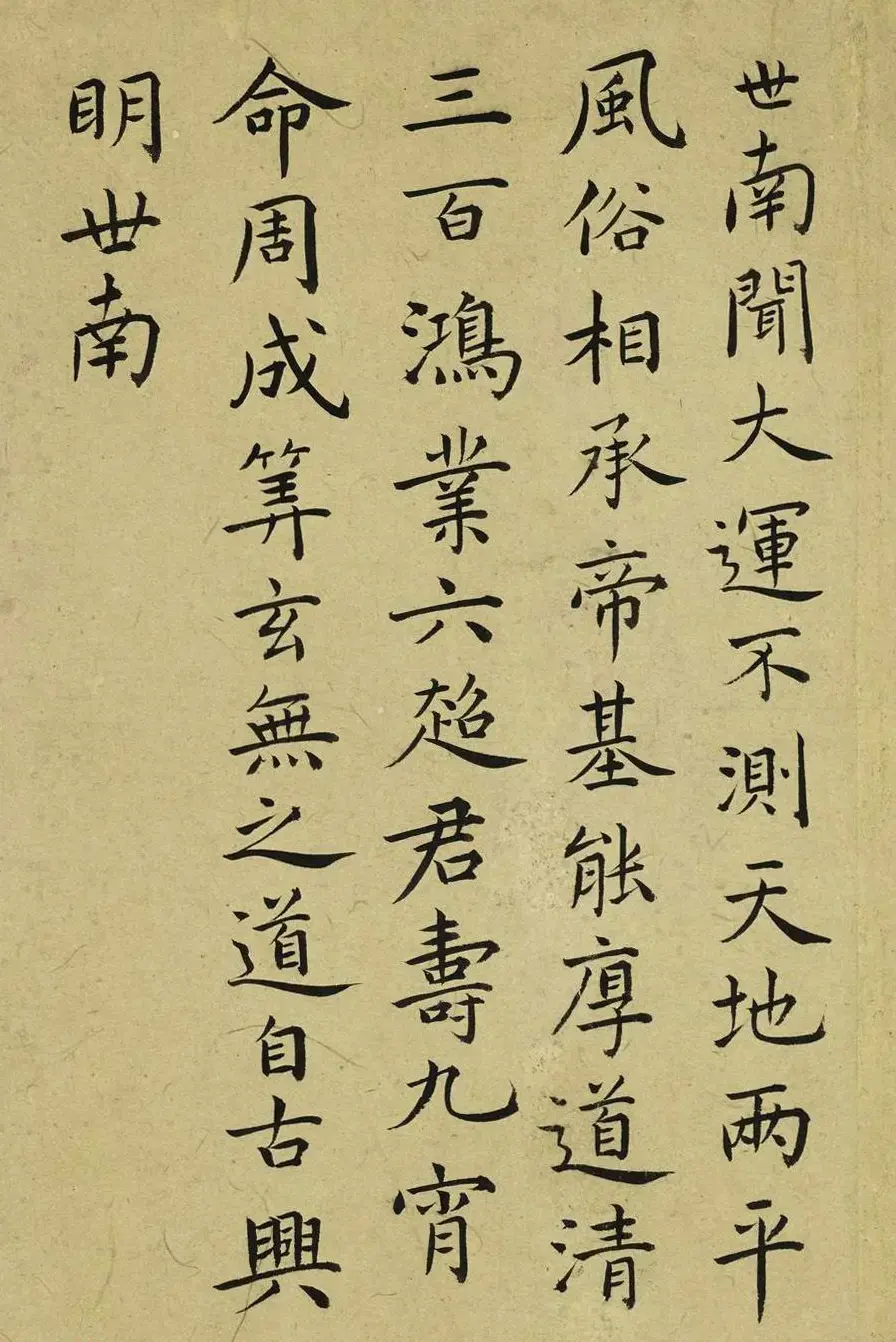 世南聞大運不測天地兩平
風俗相承帝基能厚道清
三百鴻業六超君壽九宵
命周成筭玄無之道自古興
明世南